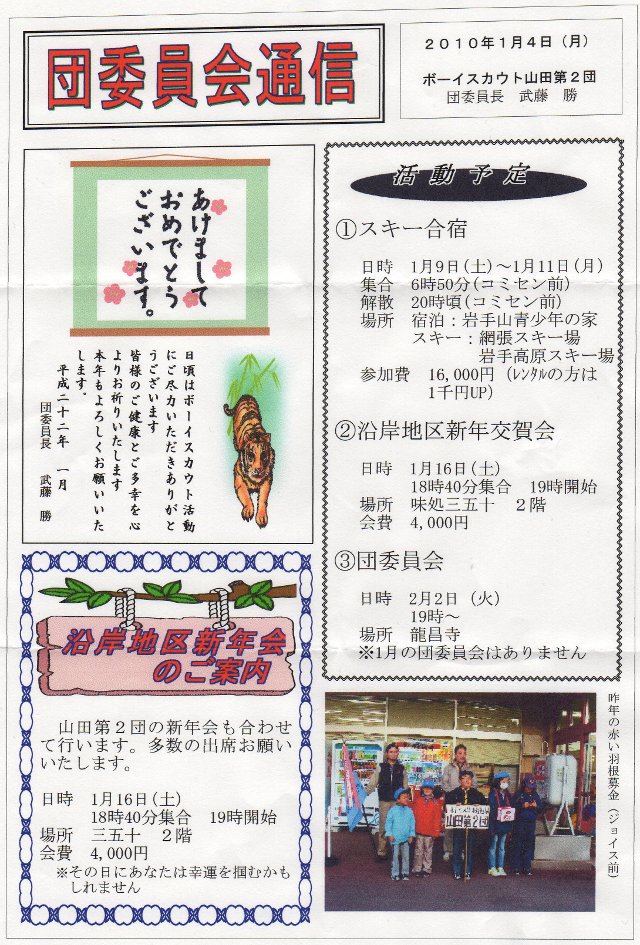 団委員会通信
2010年1月4日(月)
ボーイスカウト山田第2団
団委員長 武藤 勝
あけまして
おめでとう
ございます。
日頃はボーイスカウト活動
にご尽力いただきありがと
うございます
皆様のご健康とご多幸を心
よりお祈りいたします
本年もよろしくお願いいた
します。
平成二十二年 一月
団委員長 武藤 勝
活動予定
①スキー合宿
日時 1月9日(土)～1月11日(月)
集合 6時50分(コミセン前)
解散 20時頃(コミセン前)
場所 宿泊：岩手山青少年の家
スキー：網張スキー場
岩手高原スキー場
参加費 16,000円(レンタルの方は
1千円UP)
②沿岸地区新年交賀会
日時 1月16日(土)
18時40分集合 19時開始
場所 味処三五十 2階
会費 4,000円
③団委員会
日時 2月2日(火)
19時～
場所 龍昌寺
※1月の団委員会はありません
沿岸地区新年会
のご案内
山田第2団の新年会も合わせ
て行います。多数の出席お願い
いたします。
日時 1月16日(土)
18時40分集合 19時開始
場所 三五十 2階
会費 4,000円
※その日にあなたは幸運を掴むかも
しれません
昨年の赤い羽根募金(ジョイス前)
山田第2団